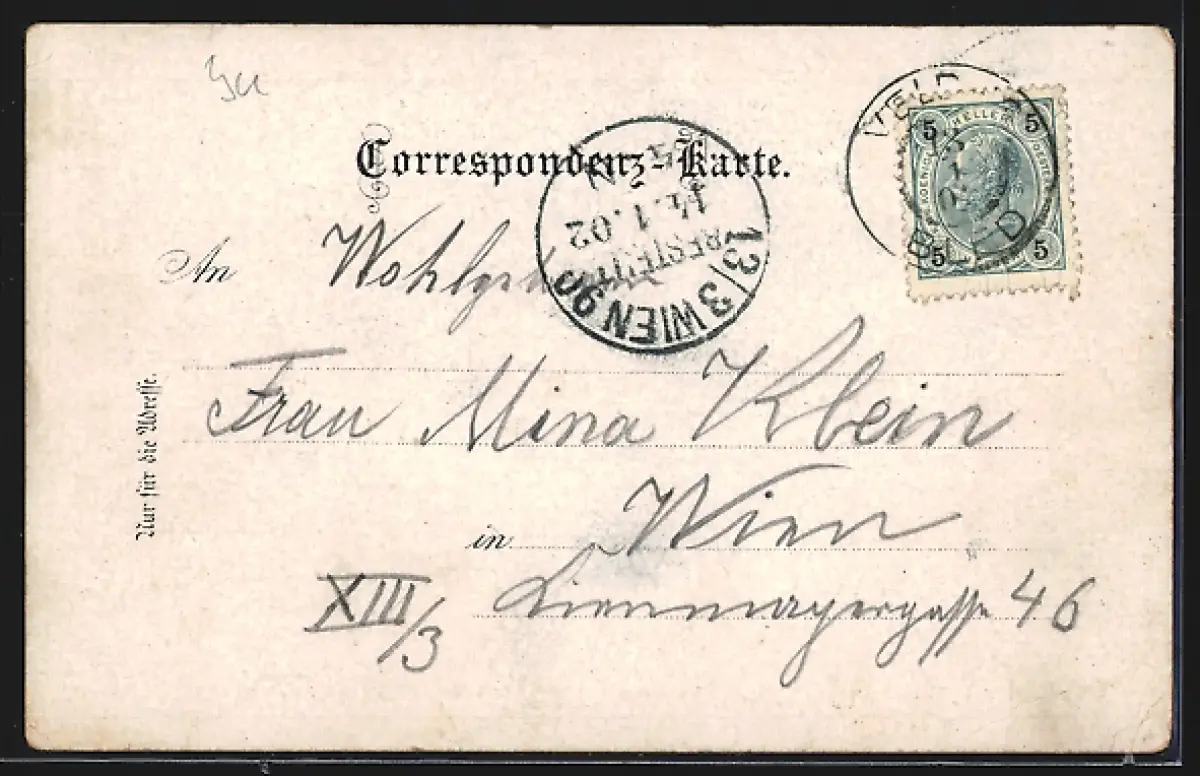 Correspondenz-Karte.
An Wohlgeb
Frau Mina Klein
in Wien
XIII/3 Lienmayergasse 46
Nur für die Adresse.
13/3 WIEN 90
14.1.02
BESTELLT
VELD
5 5
5 5